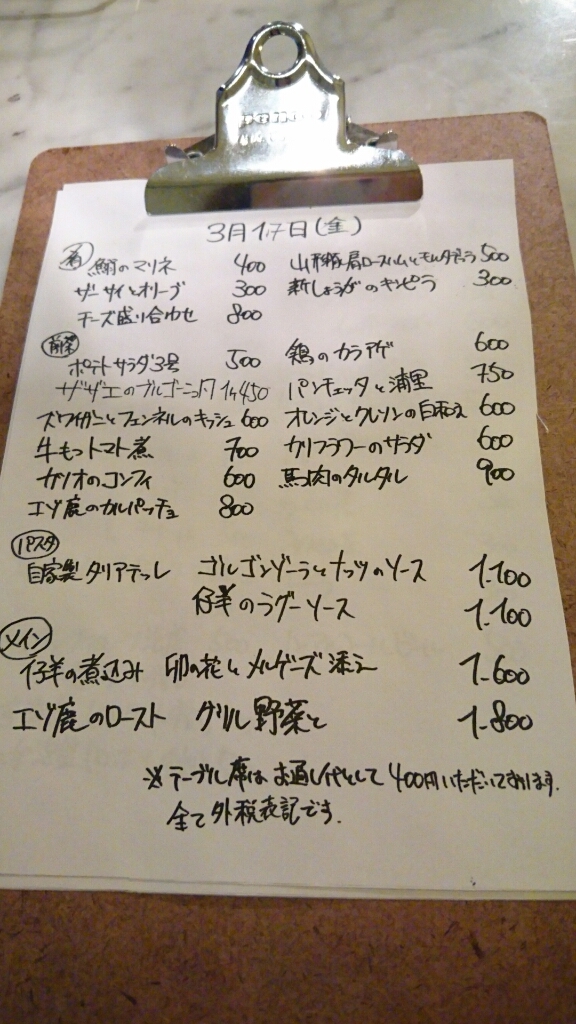 3月17日(金)
肴 鰯のマリネ 400 山形豚肩ロースハムとモルタデッラ 500
ザーサイとオリーブ 300 新しょうがのキンピラ 300
チーズ盛り合わせ 800
前菜
ポテトサラダ3号 500 鶏のカラアゲ 600
サザエのブルゴーニュ風 1ケ450 パンチェッタと浦里 750
ズワイガニとフェンネルのキッシュ 600 オレンジとクレソンの白和え 600
牛もつトマト煮 700 カリフラワーのサラダ 600
カツオのコンフィ 600 馬肉のタルタル 900
エゾ鹿のカルパッチョ 800
パスタ
自家製タリアテッレ ゴルゴンゾーラとナッツのソース 1.100
仔羊のラグーソース 1.100
メイン
仔羊の煮込み 卯の花とメルゲーズ添え 1.600
エゾ鹿のロースト グリル野菜と 1.800
※テーブル席はお通し代として400円いただいております.
全て外税表記です.